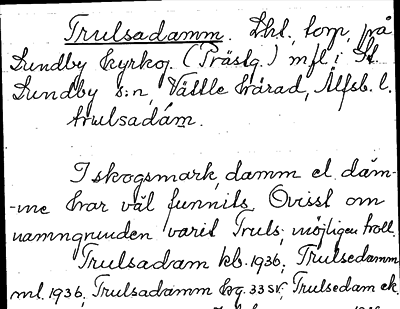 Trulsadamm. Lht, torp, på
Lundby kyrkog. (Prästg.) mfl. i St.
Lundby s:n, Vättle härad, Älfsb. l.
trulsadám̄.
I skogsmark, damm el. däm-
-me har väl funnits. Ovisst om
namngrunden varit Truls, möjligen troll.
Trulsadam kb. 1936; Trulsedamm
ml. 1936, Trulsadamm hfg. 33 SV; Trulsedam ek.